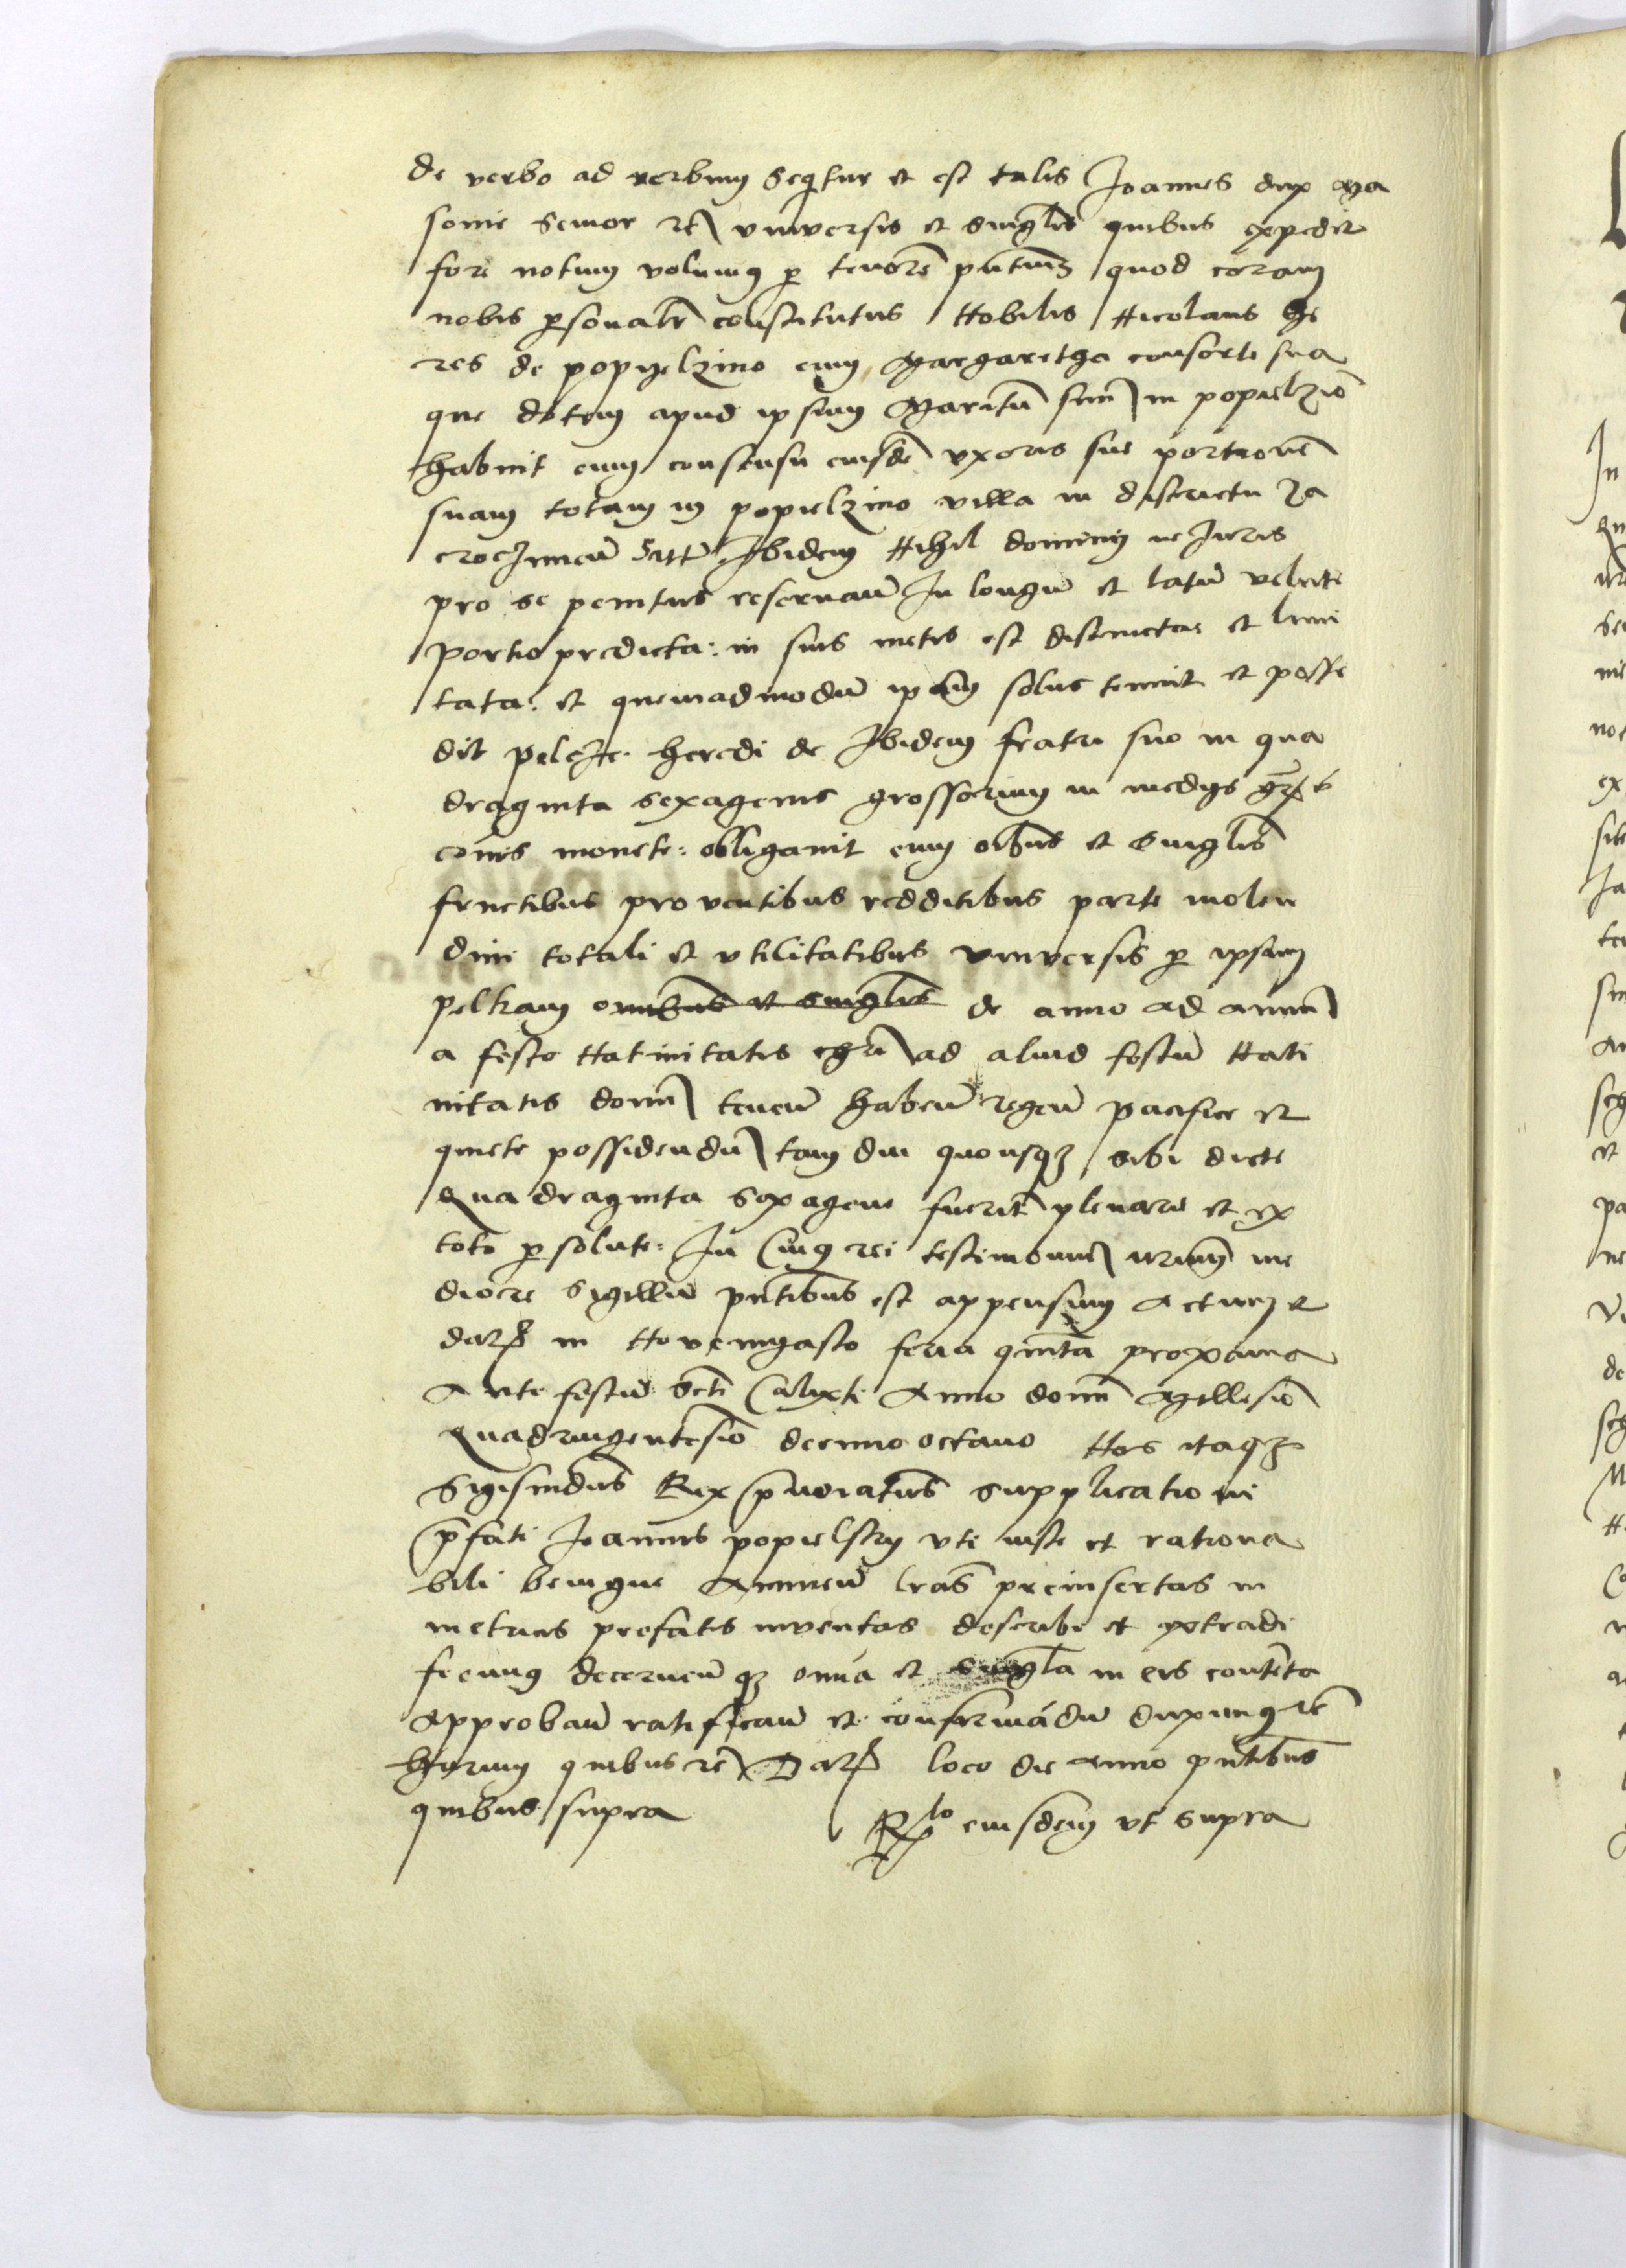 de verbo ad verbum seqitur et est talis Joannes dux Ma
sovie senior etc universis et singlis quibus expedit
fore notum volumus p tenorem pntium quod coram
nobis psonalr constitutus Nobilis Nicolaus he
res de popyelzino cum Margaretha consorte sua
que dotem apud ipsum Maritu suu in popielzino
habuit cum consensu eiusde uxoris sue portione
suam totam in popielzino villa in districtu Za
crocimen sitt Ibidem Nihil dominij ne Juris
pro se penitus reservan In longu et latu velute
portio predicta: in suis metis est distinctas et limi
tata: et quemadmodu ipam solus tenuit et posse
dit heredi de Ibidem fratri suo in qua
draginta sexagenis grossorum in medijs
cois monete: obligavit cum oibus et singlis
fructibus proventibus redditibus parte molen
dini totali et utilitatibus universis p ipsum
pelkam omnibus et singlis de anno ad annu
a festo Nativitatis chri ad aliud festu Nati
vitatis domi tenen haben regen pacifice et
quiete possidendu tam diu quousq sibi dicte
Quadraginta sexagene fuerit plenarie et ex
toto psolute: In Cuius rei testimoniu nrum me
diocre sigillu pntibus est appensum Actum et
dat in Novemyasto feria quinta proxima
Ante festu scti Calixti Anno domi Millesio
Quadringentesio decimo octavo Nos itaq
Sigismdus Rex pnoiatus supplicationi
pfati Joannis popielsky uti iuste et rationa
bili benigne Annuen lras preinsertas in
metricis prefatis inventas describi et extradi
fecimus decernen q omia et singla in eis contenta
Approban ratifican et confirmadu duximus etc
harum quibus etc Dat loco die Anno pntibus
quibus supra
Rlo eiusdem ut supra